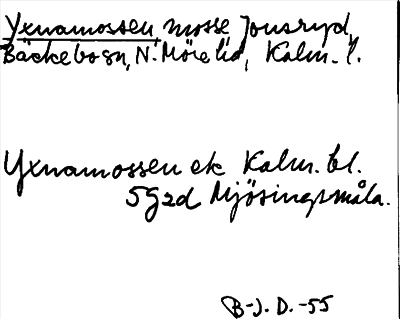 Yxnamossen, mosse Jonsryd,
Bäckebo sn, N. Möre hd, Kalm. l.
Yxnamossen ek Kalm. bl.
5G2d Mjösingsmåla.
B-J. D. -55